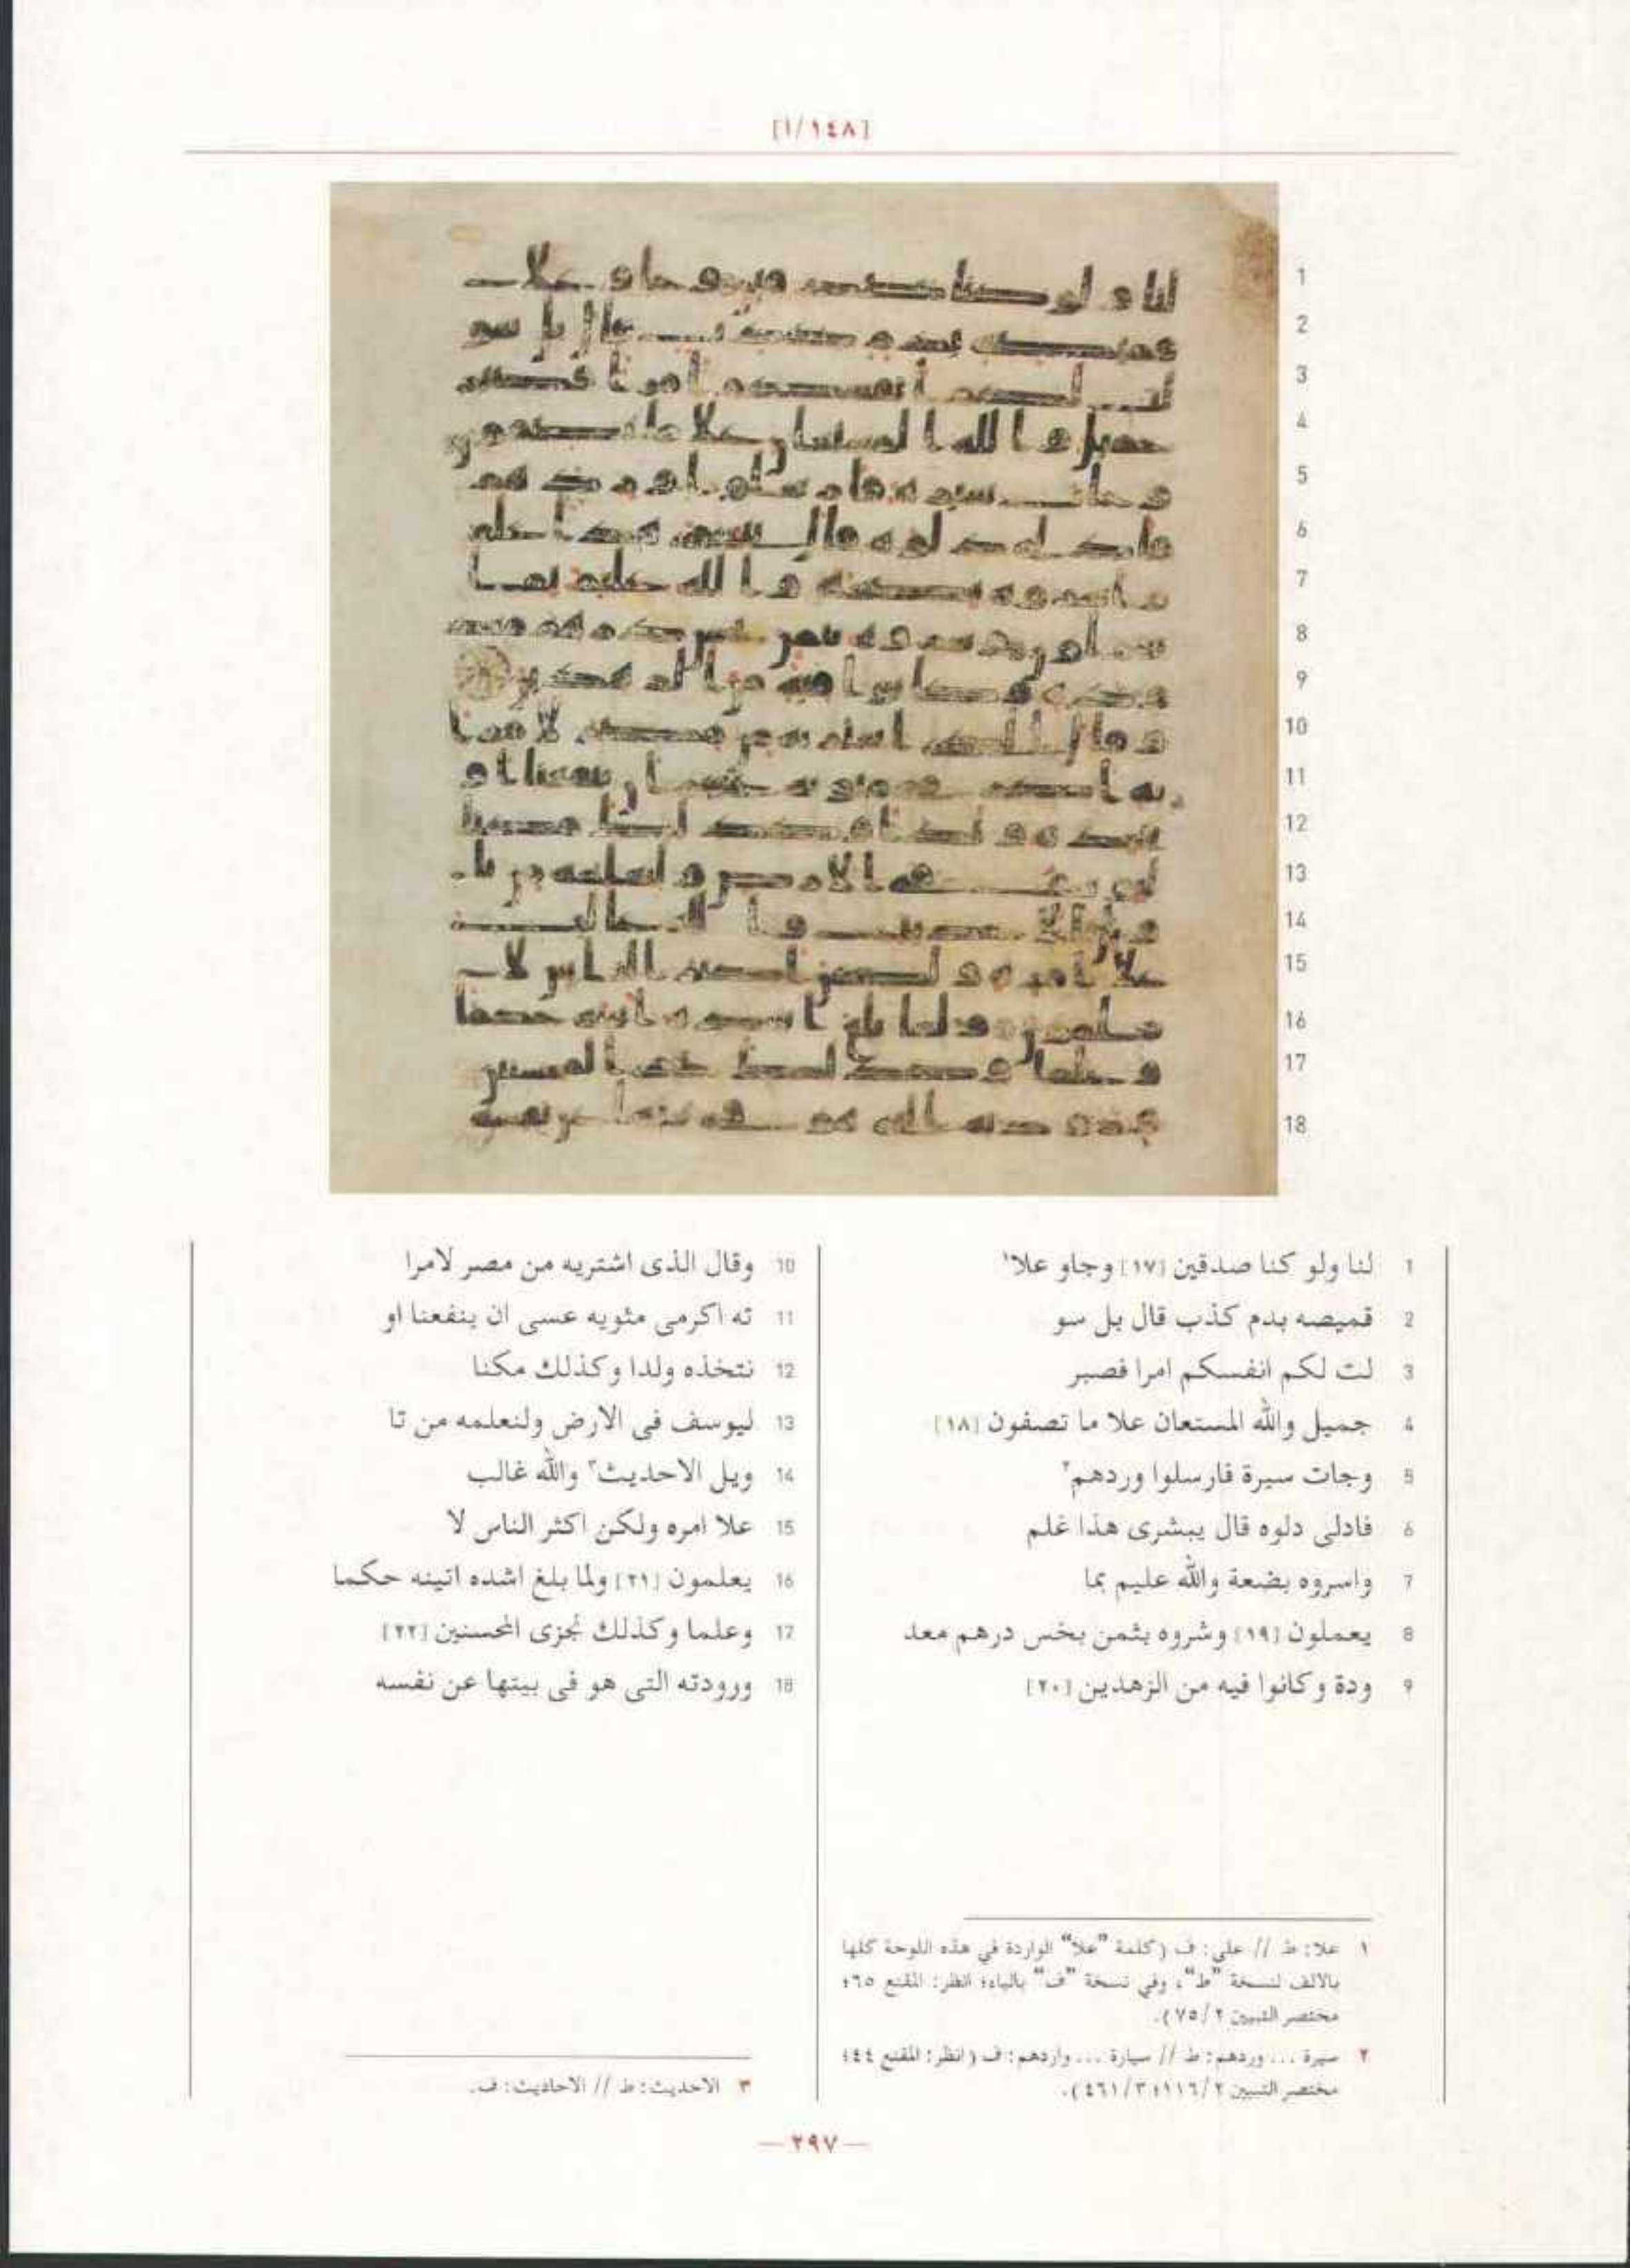 [١٤٨/أ]
1
2
3
4
5
6
7
8
9
10
11
12
13
14
15
16
17
18
1 لنا ولو كنا صدقين [١٧] وجاو علا١
2 قميصه بدم كذب قال بل سو
3 لت لكم انفسكم امرا فصبر
4 جميل والله المستعان علا ما تصفون [١٨]
5 وجات سيرة فارسلوا وردهم٢
6 فادلى دلوه قال يبشرى هذا غلم
7 واسروه بضعة والله عليم بما
8 يعملون [١٩] وشروه بثمن بخس درهم معد
9 ودة وكانوا فيه من الزهدين [٢٠]
10 وقال الذى اشتريه من مصر لامرا
11 ته اكرمى مثويه عسى ان ينفعنا او
12 نتخذه ولدا وكذلك مكنا
13 ليوسف فى الارض ولنعلمه من تا
14 ويل الاحديث٣ والله غالب
15 علا امره ولكن اكثر الناس لا
16 يعلمون [٢١] ولما بلغ اشده اتينه حكما
17 وعلما وكذلك نجزى المحسنين [٢٢]
18 ورودته التى هو فى بيتها عن نفسه
١ علا: ط // على: ف (كلمة "علا" الواردة في هذه اللوحة كلها
بالالف لنسخة "ط"، وفي نسخة "ف" بالياء؛ انظر: المقنع ٦٥؛
مختصر التبيين ٧٥/٢).
٢ سيرة ... وردهم: ط // سيارة ... واردهم: ف (انظر: المقنع ٤٤؛
مختصر التبيين ١١٦/٢؛ ٤٦١/٣).
٣ الاحديث: ط // الاحاديث: ف.
— ٢٩٧ —